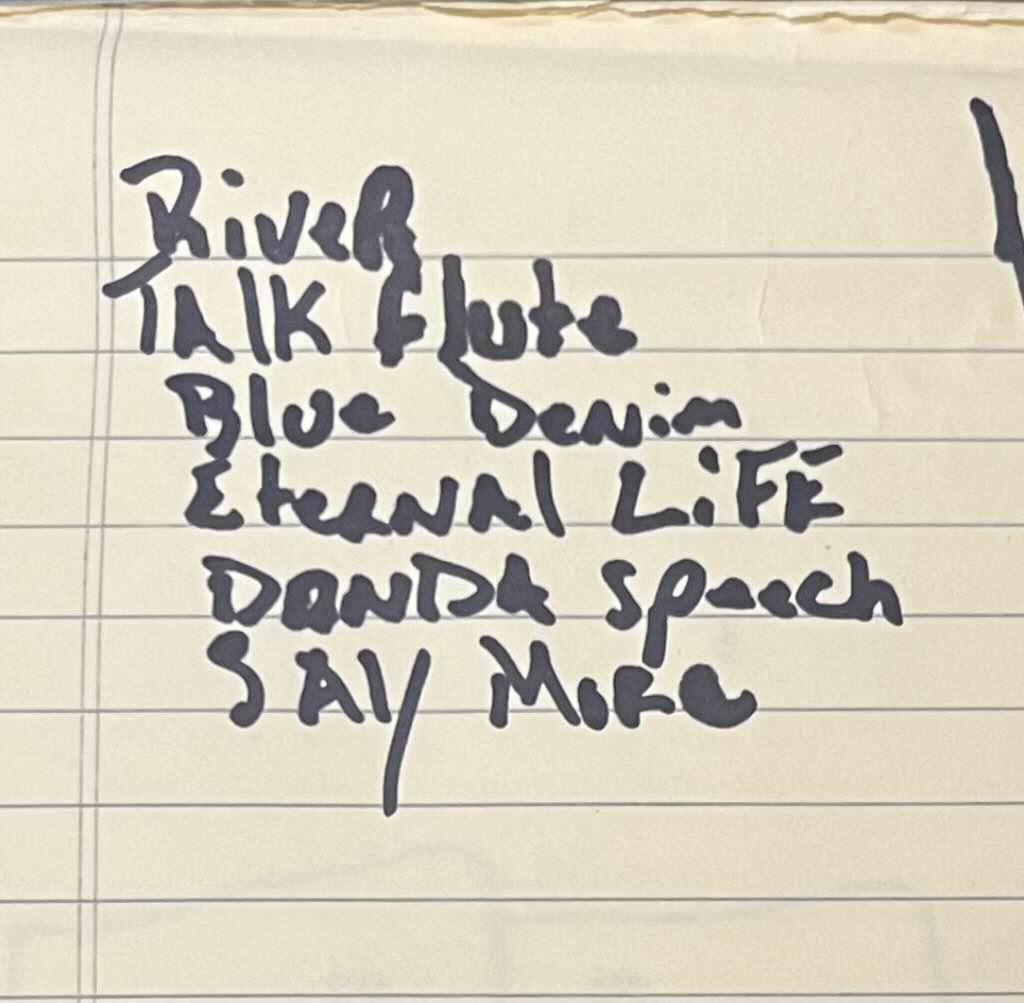 River
Talk Flute
Blue Denim
Eternal Life
DONDA Speech
Say More